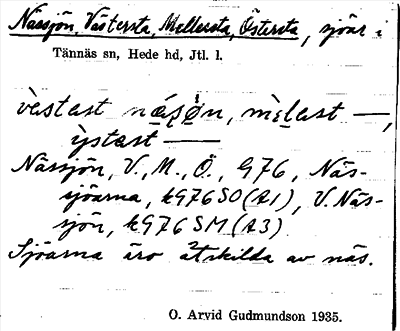 Nässjön, Västersta, Mellersta, Östersta, sjöar i
Tännäs sn, Hede hd, Jtl. l.
västast
Nässjön, V., M., Ö., G76, Näs-
sjöarna, kG76SO(A1), V. Näs-
sjön, kG76SM(A3)
Sjöarna äro åtskilda av näs.
O. Arvid Gudmundson 1935.